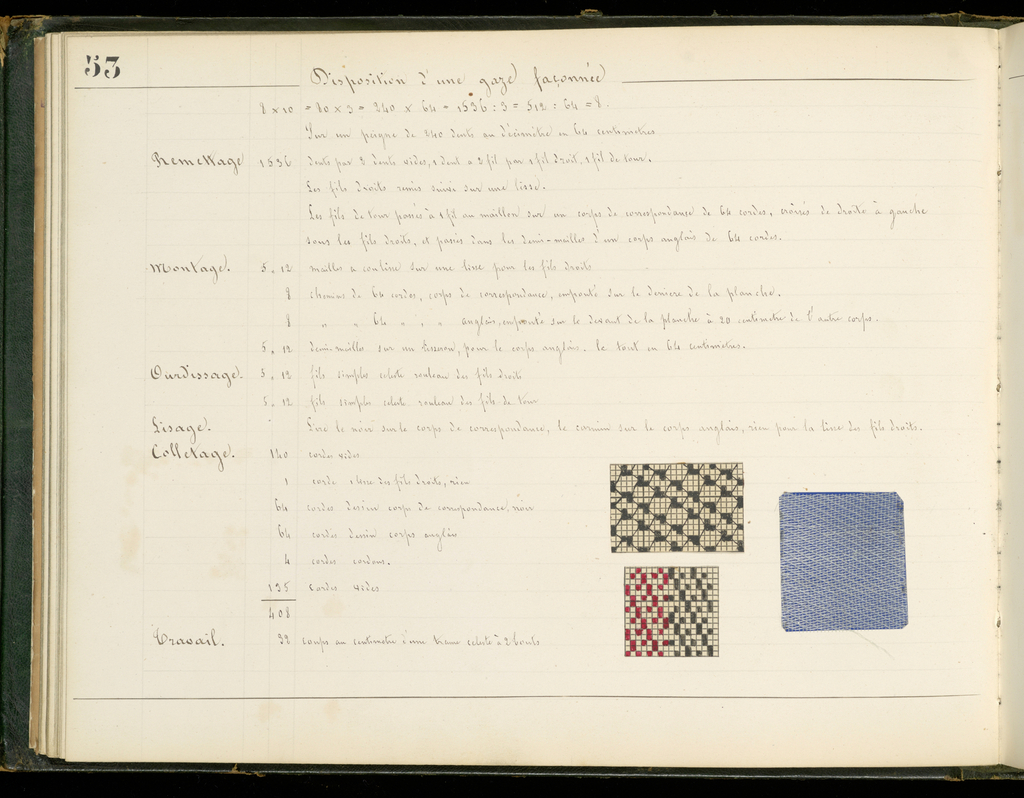 53
Disposition d'une gaze façonnée
8 x 10 = 80 x 3 = 240 x 64 = 1536 : 3 = 512 : 64 = 8.
Sur un peigne de 240 dents au décimètre en 64 centimètres
Remettage 1536 dents par 2 dents vides, 1 dent à 2 fil par 1 fil droit, 1 fil de tour.
Les fils droits remis suivi sur une lisse.
Les fils de tour passés à 1 fil au maillon sur un corps de correspondance de 64 cordes, croisés de droite à gauche
sous les fils droits, et passés dans les demi-mailles d'un corps anglais de 64 cordes.
Montage. 5.12 mailles à coulisse sur une lisse pour les fils droits
8 chemins de 64 cordes, corps de correspondance, empouté sur le derrière de la planche.
8 " " 64 " , " anglais, empouté sur le devant de la planche à 20 centimètre de l'autre corps.
5.12 demi-mailles sur un , pour le corps anglais. le tout en 64 centimètres.
Ourdissage. 5.12 fils simples celeste rouleau des fils droits
5.12 fils simples celeste rouleau des fils de tour
Lisage. Lire le noir sur le corps de correspondance, le carmin sur le corps anglais, rien pour la lisse des fils droits.
Colletage. 140 cordes vides
1 corde 1 lisse des fils droits, rien
64 cordes dessin corps de correspondance, noir
64 cordes dessin corps anglais
4 cordes cordons.
135 cordes vides
408
Travail. 32 coups au centimètre d'une trame celeste à 2 bouts